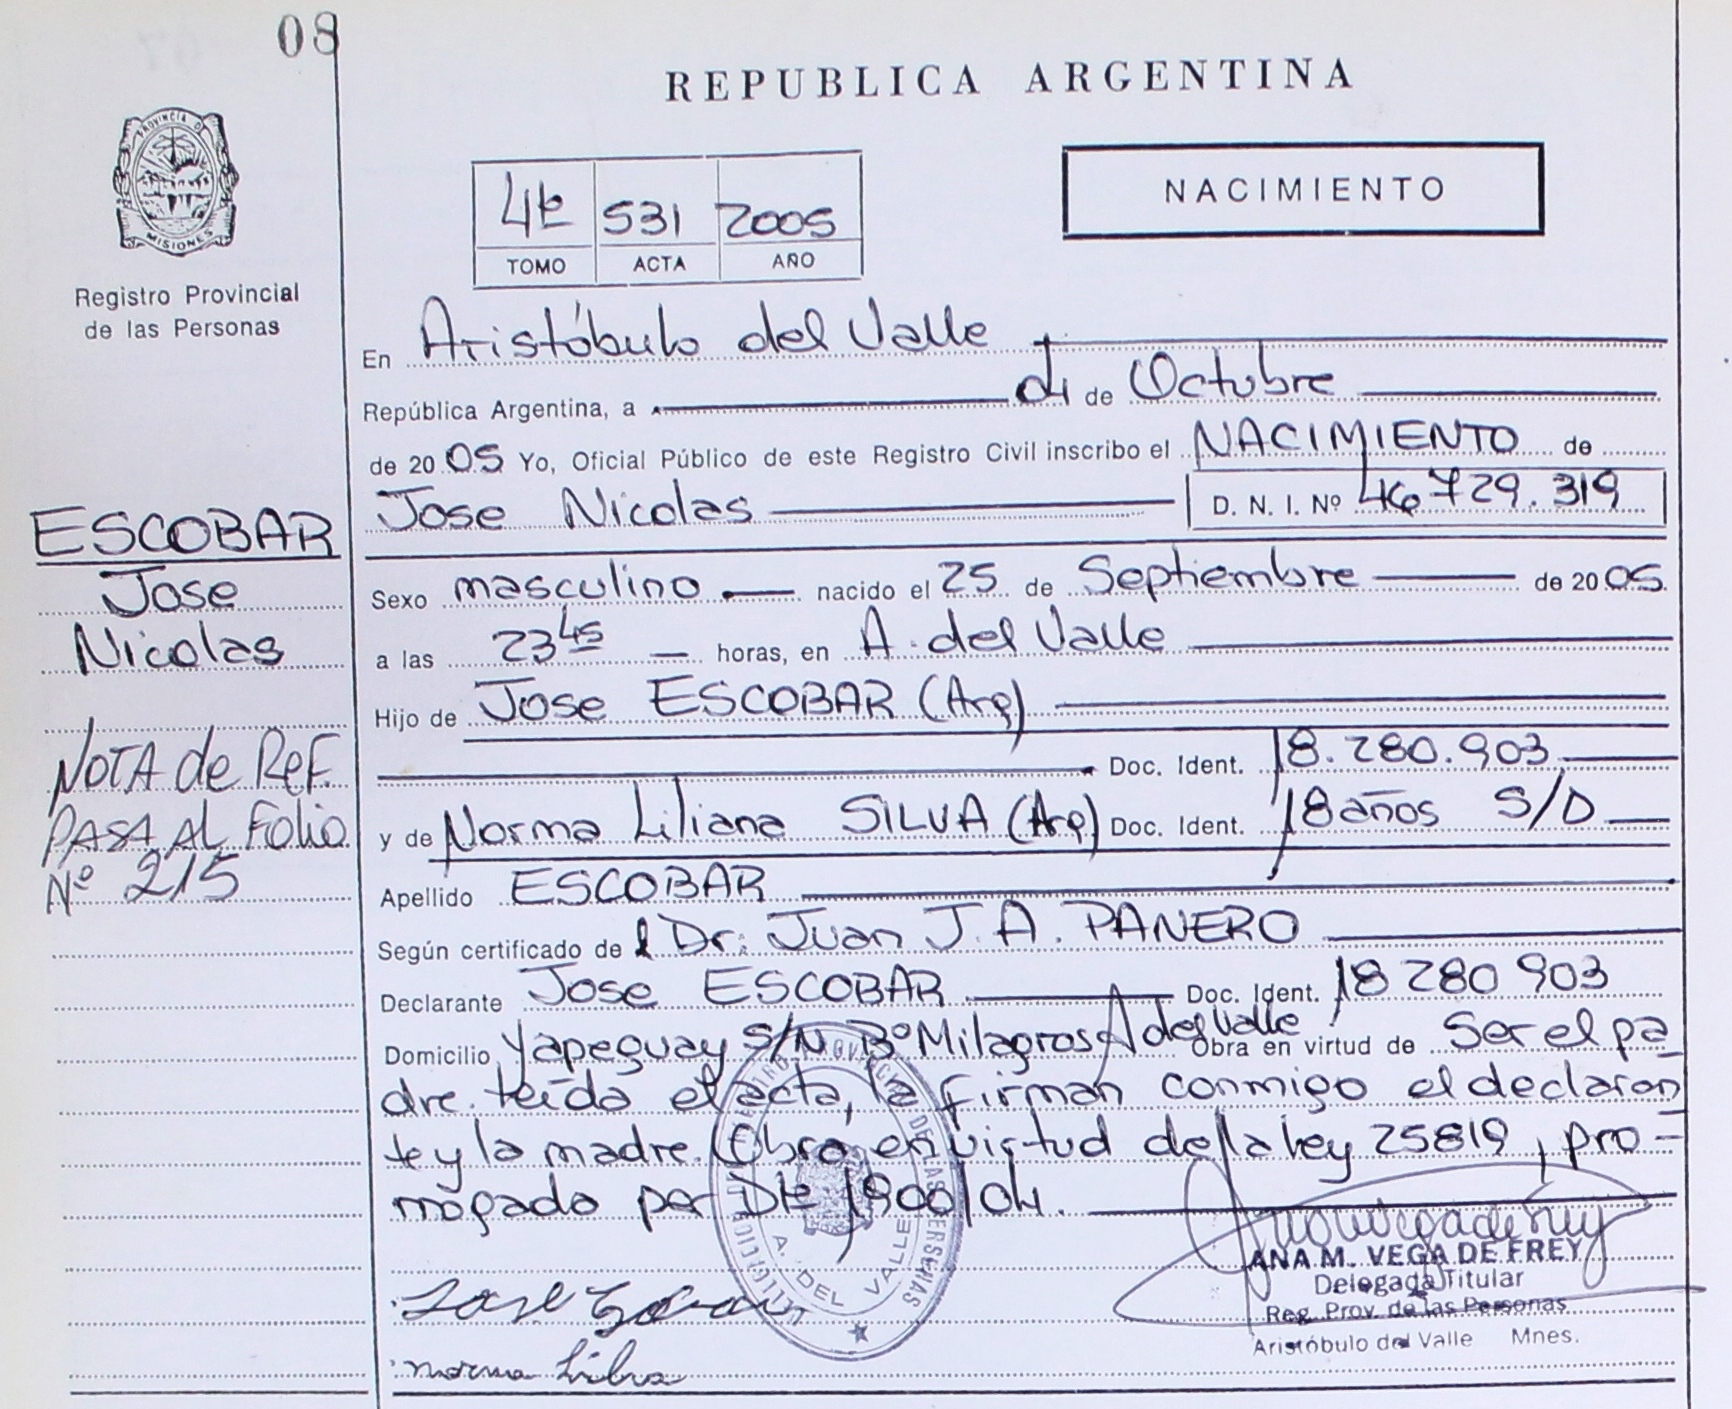 08
REPUBLICA ARGENTINA
PROVINCIA D
MISIONES
Registro Provincial
de las Personas
4t 531 2005
TOMO ACTA AÑO
NACIMIENTO
En Aristóbulo del Valle
República Argentina, a 04 de Octubre
de 20 05 Yo, Oficial Público de este Registro Civil inscribo el NACIMIENTO de
Jose Nicolas D. N. I. Nº 46 729.319
ESCOBAR
Jose
Nicolas
Sexo masculino nacido el 25 de Septiembre de 20 05
a las 23 45 horas, en A. del Valle
Hijo de Jose ESCOBAR (Arg)
Doc. Ident. 18.280.903
y de Norma Liliana SILVA (Arg) Doc. Ident. 18 años S/D
NOTA de Ref.
PASA AL Folio
Nº 215
Apellido ESCOBAR
Según certificado de l Dr. Juan J. A. PANERO
Declarante Jose ESCOBAR Doc. Ident. 18 280 903
Domicilio Yapeguay S/N Bº Milagros A del Valle Obra en virtud de Ser el pa
dre. Leída el acta, la firman conmigo el declaran
te y la madre. Obro, en virtud de la ley 25819, pro-
mogado por Dto 1900/04.
A. DEL VALLE
ANA M. VEGA DE FREY
Delegada Titular
Reg. Prov. de las Personas
Aristóbulo del Valle Mnes.
Jose Escobar
norma Silva